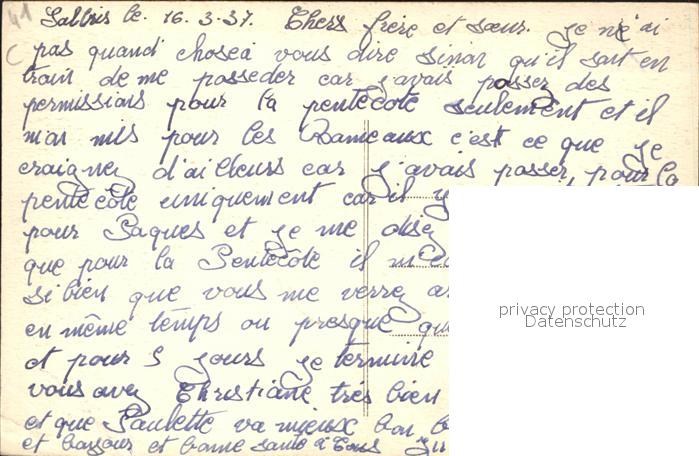 41
Salbris le. 16.3.37. Chers frère et sœur. Je n'ai
pas quand chosea vous dire sinon qu'il sont en
train de me posseder car j'avais passez des
permissions pour la pentecôte seulement et il
m'on mis pour les Rameaux c'est ce que je
craignez d'ailleurs car j'avais passez pour la
pentecôte uniquement car il y
pour Paques et je me disez
que pour la Pentecôte il
si bien que vous me verrez
en même temps ou presque
et pour 5 jours je termine
vous avez Christiane très bien
et que Paulette va mieux bon
et bonjour et bonne santé à tous
privacy protection
Datenschutz